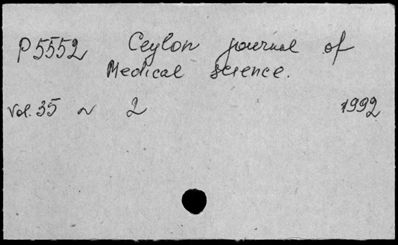 P5552 Ceylon journal of
Medical science.
Vol. 35 N 2 1992